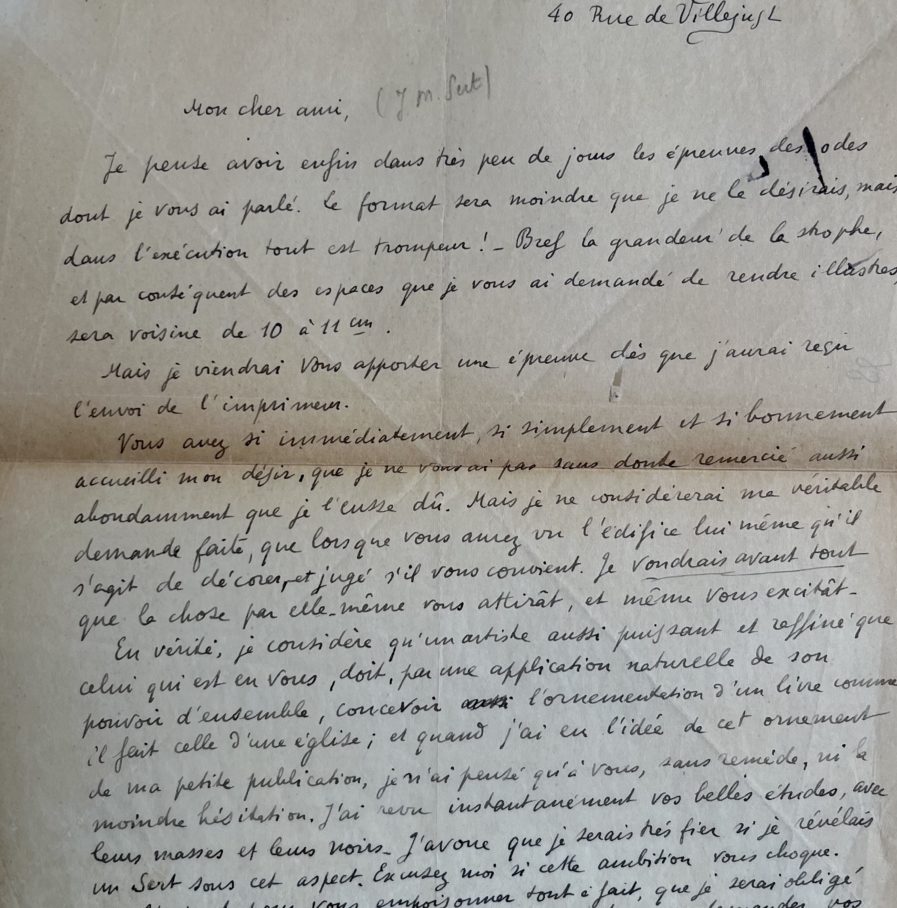 40 Rue de Villejust
Mon cher ami, (J. M. Sert)
Je pense avoir enfin dans très peu de jours les épreuves des odes
dont je vous ai parlé. Le format sera moindre que je ne le désirais, mais
dans l'exécution tout est trompeur! - Bref la grandeur de la strophe,
et par conséquent des espaces que je vous ai demandé de rendre illustres,
sera voisine de 10 à 11 cm.
Mais je viendrai vous apporter une épreuve dès que j'aurai reçu
l'envoi de l'imprimeur.
Vous avez si immédiatement, si simplement et si bonnement
accueilli mon désir, que je ne vous ai pas sans doute remercié aussi
abondamment que je l'eusse dû. Mais je ne considérerai ma véritable
demande faite, que lorsque vous aurez vu l'édifice lui même qu'il
s'agit de décorer, et jugé s'il vous convient. Je voudrais avant tout
que la chose par elle-même vous attirât, et même vous excitât -
En vérité, je considère qu'un artiste aussi puissant et raffiné que
celui qui est en vous, doit, par une application naturelle de son
pouvoir d'ensemble, concevoir l'ornementation d'un livre comme
il fait celle d'une église; et quand j'ai eu l'idée de cet ornement
de ma petite publication, je n'ai pensé qu'à vous, sans remède, ni la
moindre hésitation. J'ai revu instantanément vos belles études, avec
leurs masses et leurs noirs - J'avoue que je serais très fier si je révélais
un Sert sous cet aspect. Excusez moi si cette ambition vous choque.
vous empoisonner tout à fait, que je serai obligé
vos